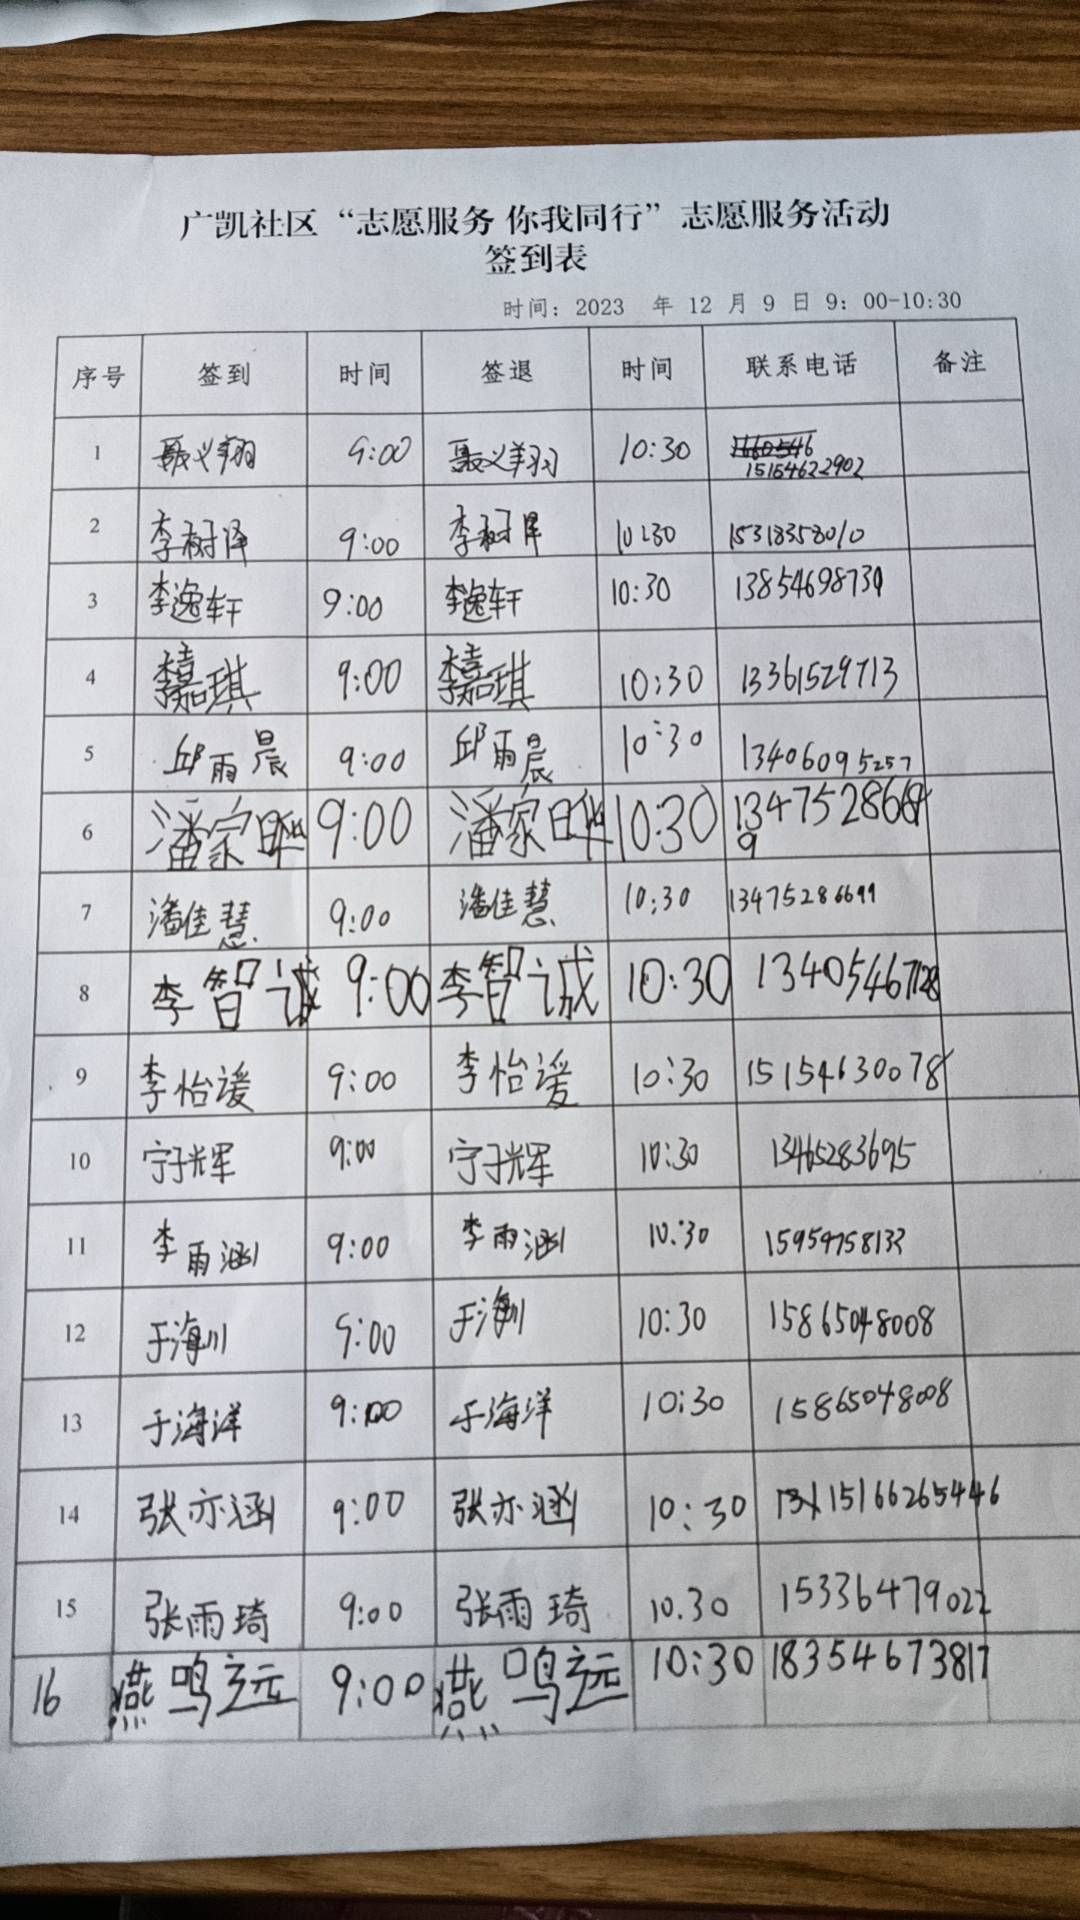 广凯社区“志愿服务 你我同行”志愿服务活动
签到表
时间：2023 年 12 月 9 日 9：00-10:30
序号 签到 时间 签退 时间 联系电话 备注
1 聂义翔 9:00 聂义翔 10:30 15154622902
2 李树泽 9:00 李树泽 10:30 15318358010
3 李逸轩 9:00 李逸轩 10:30 13854698739
4 李嘉琪 9:00 李嘉琪 10:30 13361529713
5 邱雨晨 9:00 邱雨晨 10:30 13406095257
6 潘家晔 9:00 潘家晔 10:30
7 潘佳慧 9:00 潘佳慧 10:30 13475286699
8 李智诚 9:00 李智诚 10:30 13405467128
9 李怡谖 9:00 李怡谖 10:30 15154630078
10 宁子辉 9:00 宁子辉 10:30 13465283695
11 李雨涵 9:00 李雨涵 10:30
12 于海川 9:00 于海川 10:30 15865048008
13 于海洋 9:00 于海洋 10:30 15865048008
14 张亦涵 9:00 张亦涵 10:30 15166265446
15 张雨琦 9:00 张雨琦 10.30 15336479022
16 燕鸣远 9:00 燕鸣远 10:30 18354673817